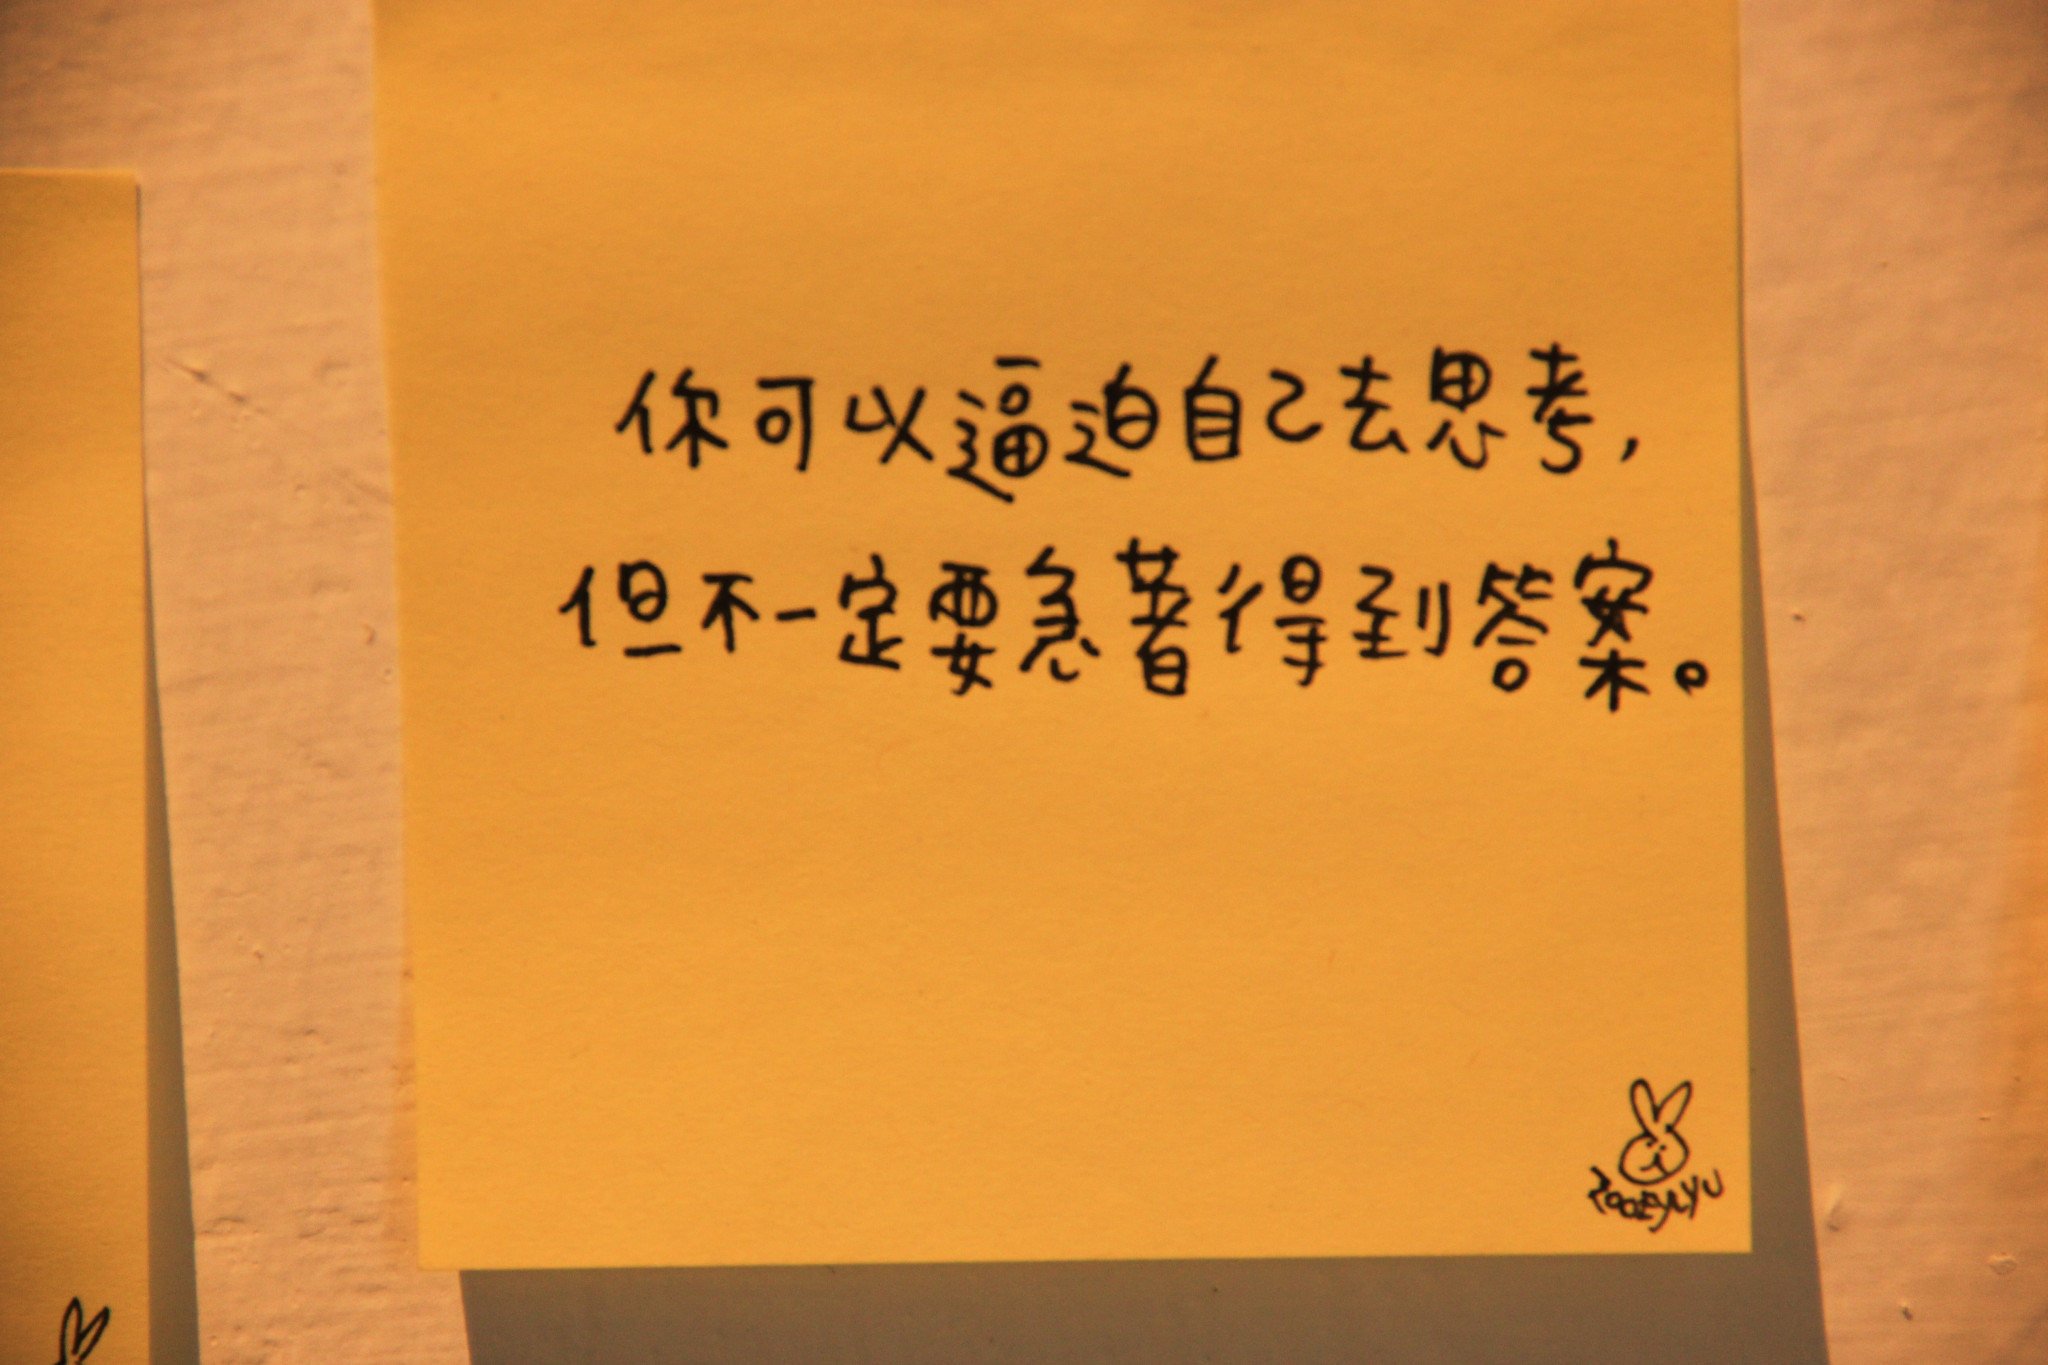 你可以逼迫自己去思考，
但不一定要急著得到答案。